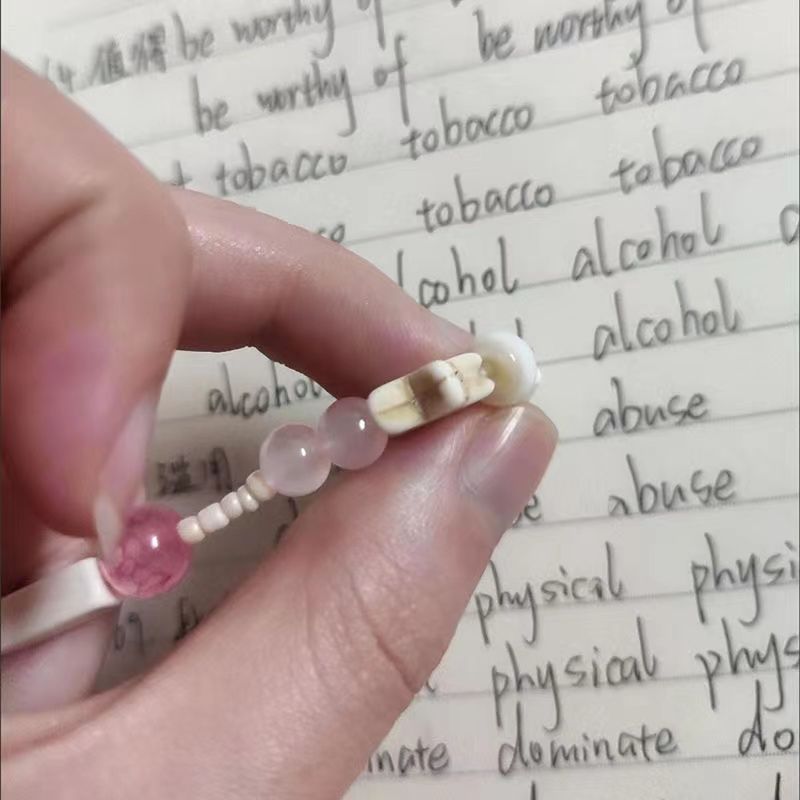 值得 be worthy of be worthy of
be worthy of
tobacco tobacco tobacco
tobacco tobacco
alcohol
alcohol
alcohol
abuse
滥用
abuse
physical physi
physical phys
dominate do